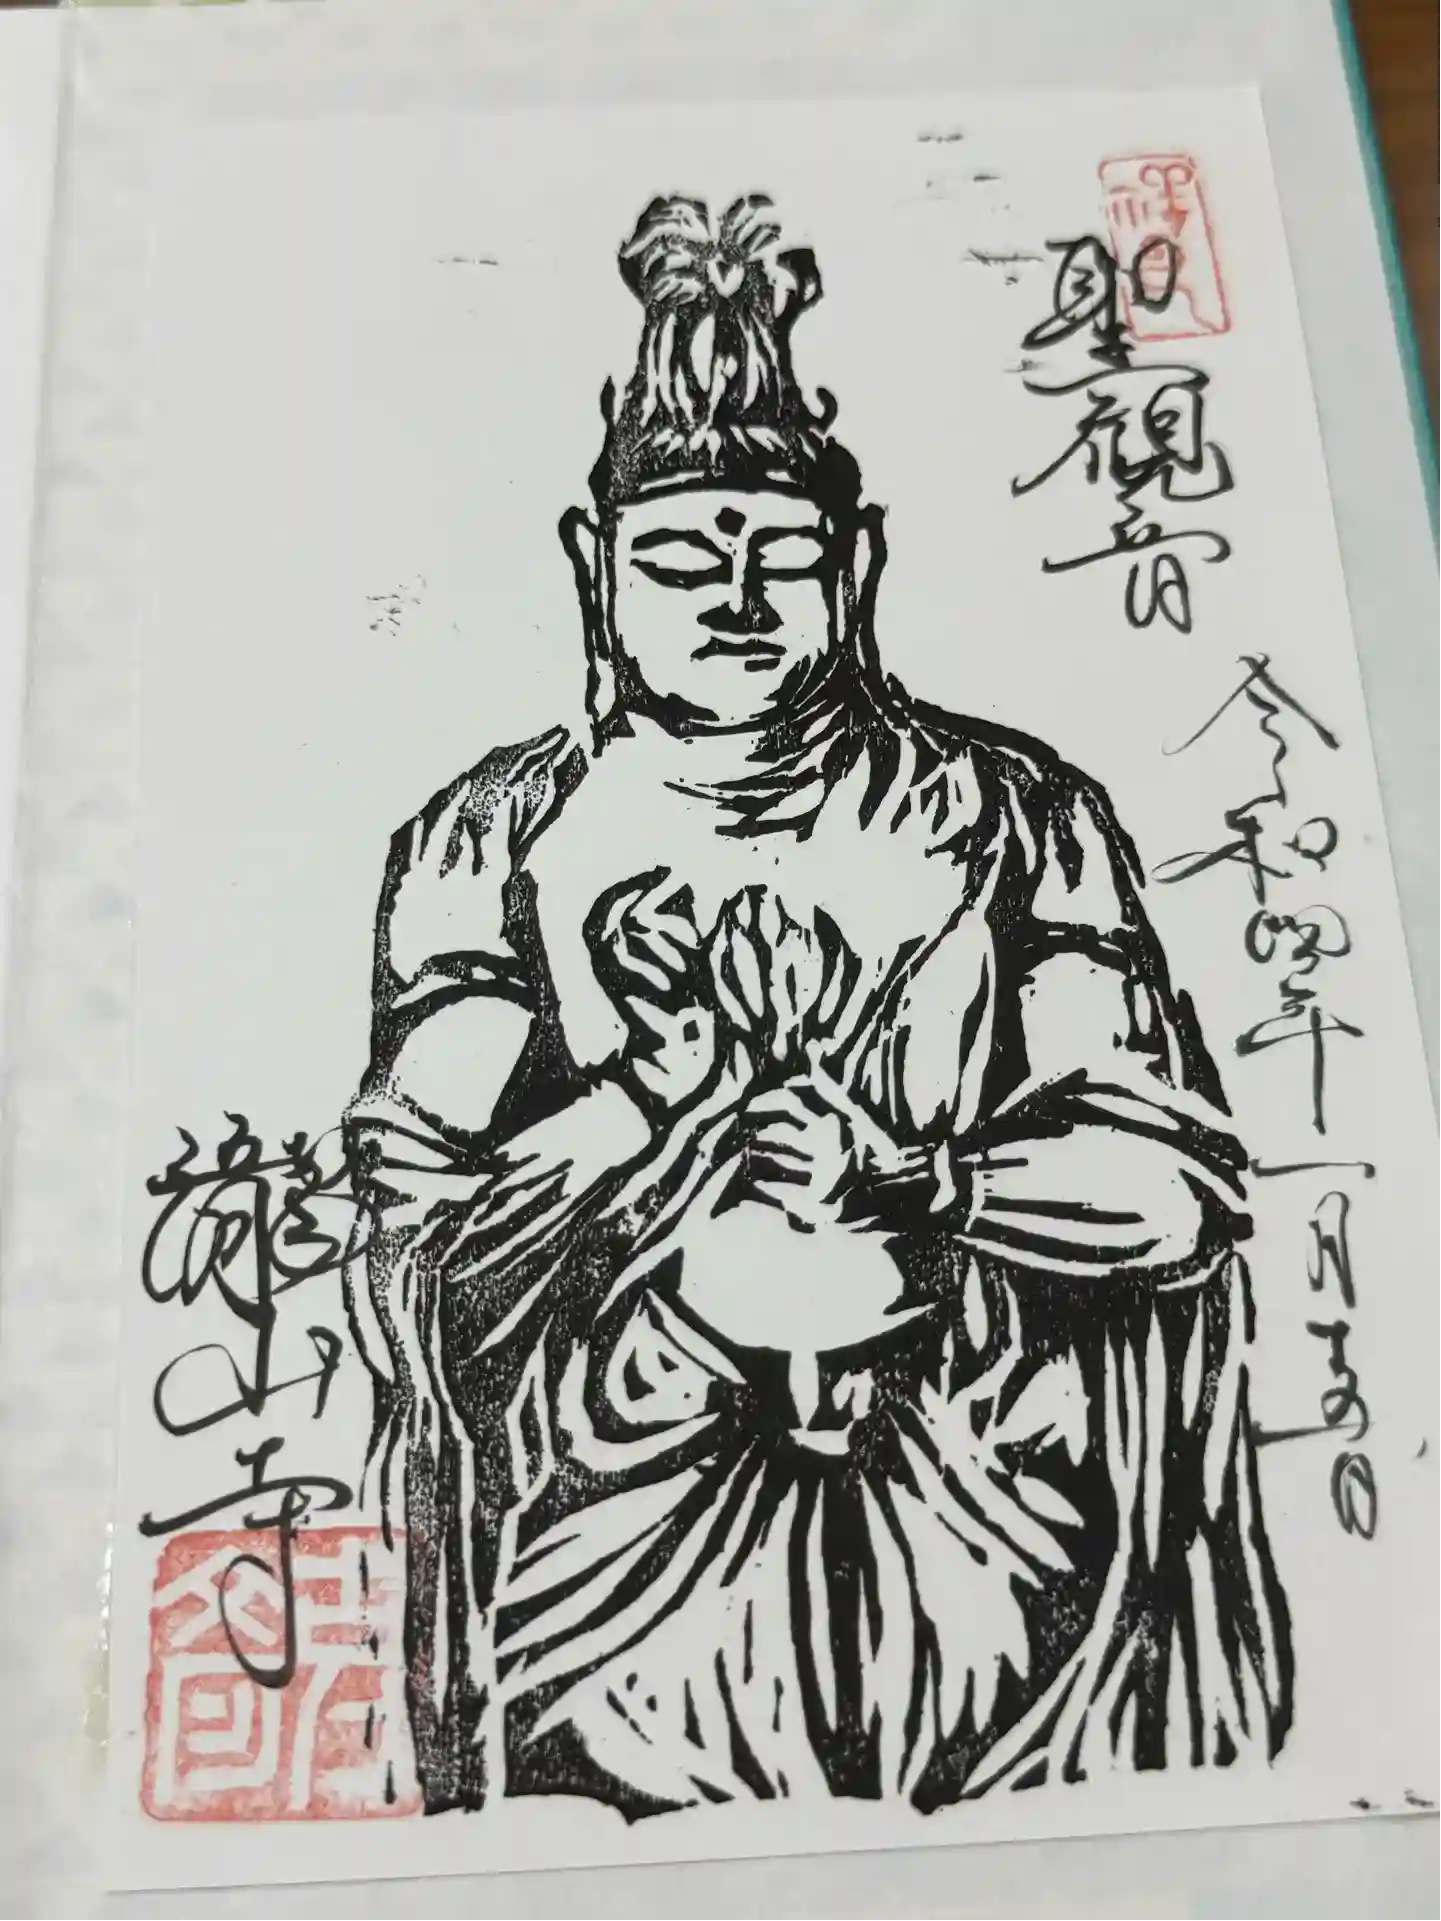 聖観音
令和四年一月 日
瀧山寺